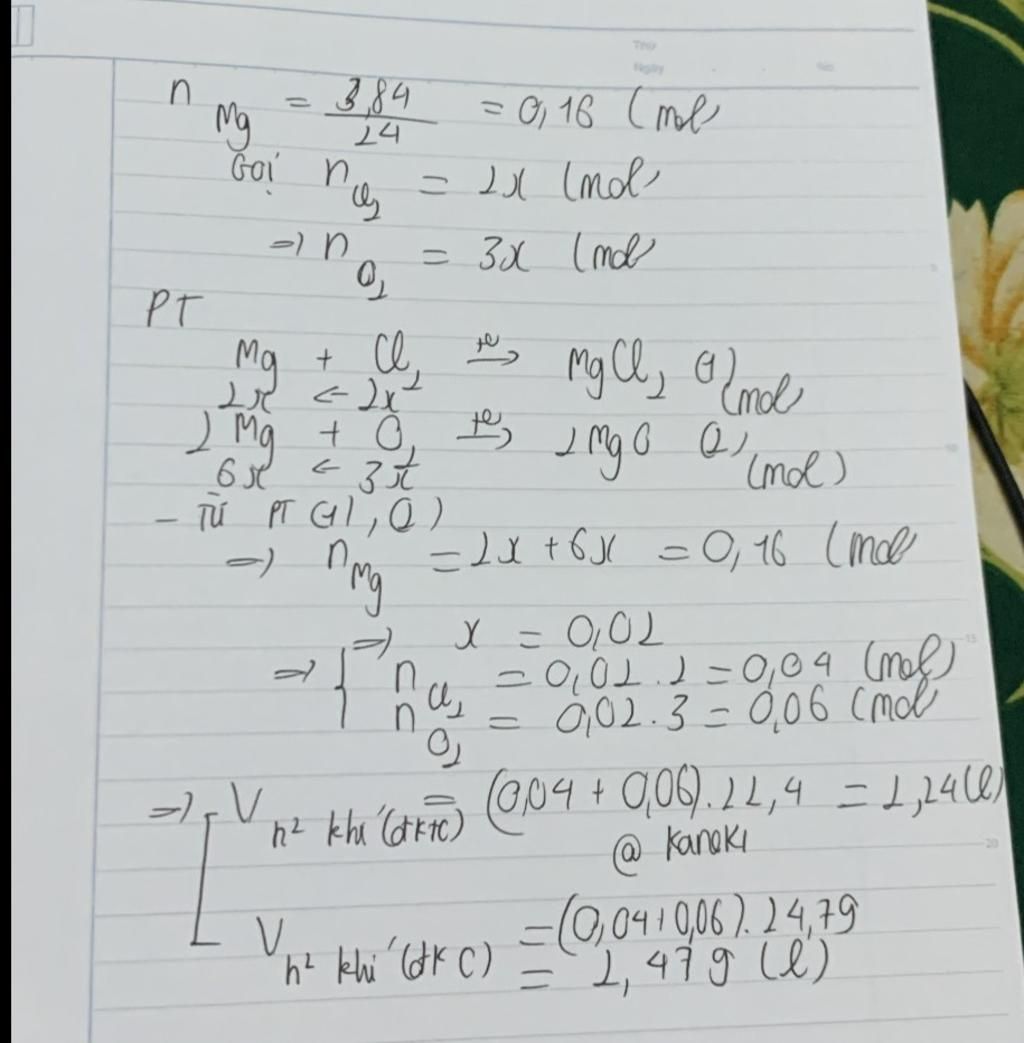 Thứ
Ngày . . No
n Mg = 3,84/24 = 0,16 (mol
Gọi n Cl2 = 2x (mol)
=> n O2 = 3x (mol
PT
Mg + Cl2 t°→ MgCl2 (1) (mol
2x ← 2x
2 Mg + O2 t°→ 2MgO (2) (mol)
6x ← 3x
- Từ PT (1), (2)
=> n Mg = 2x + 6x = 0,16 (mol
=> x = 0,02
=> { n Cl2 = 0,02 . 2 = 0,04 (mol)
n O2 = 0,02 . 3 = 0,06 (mol
=> [ V h² khí (đktc) = (0,04 + 0,06). 22,4 = 2,24 (l)
@ Kaneki
V h² khí (đkc) = (0,04+0,06). 24,79
= 2,479 (l)
5
10
15
20